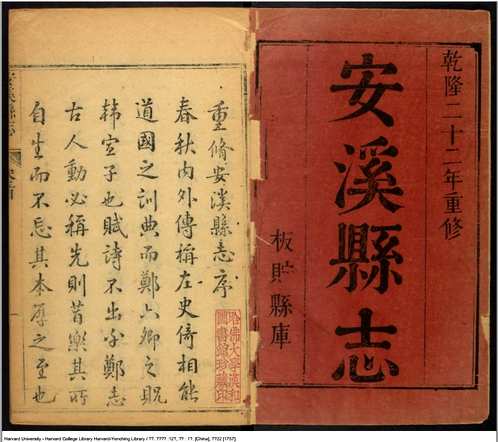 乾隆二十二年重修
安溪縣志
板貯縣庫
重脩安溪縣志序
春秋內外傳稱左史倚相能
道國之訓典而鄭六卿之貺
韓宣子也賦詩不出乎鄭志
古人動必稱先則昔樂其所
自生而不忘其本厚之至也
哈佛大學漢和
圖書館珍藏印
安溪縣志
Harvard University - Harvard College Library Harvard-Yenching Library / ??. ???? 12?, ?? : ??. [China], ??22 [1757]